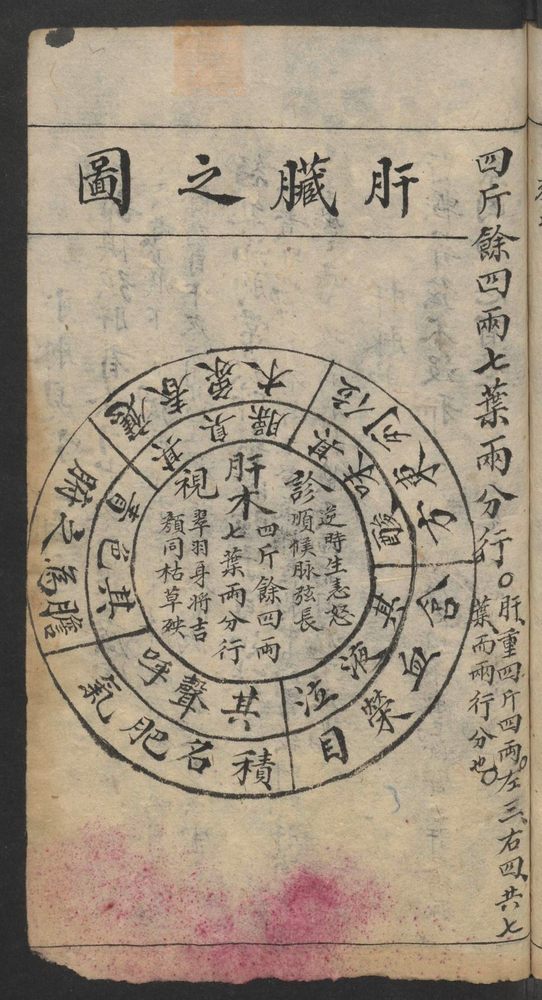 四斤餘四兩七葉兩分行。
肝重四斤四兩左三右四共七
葉而兩行分也
肝臟之圖
應春象木
位列東方
合血榮目
積名肥氣
膽為之腑
其臭臊
其味酸
其液泣
其聲呼
其色青
診
逆時生恚怒
順候脉弦長
肝木
四斤餘四兩
七葉兩分行
視
翠羽身將吉
顏同枯草殃